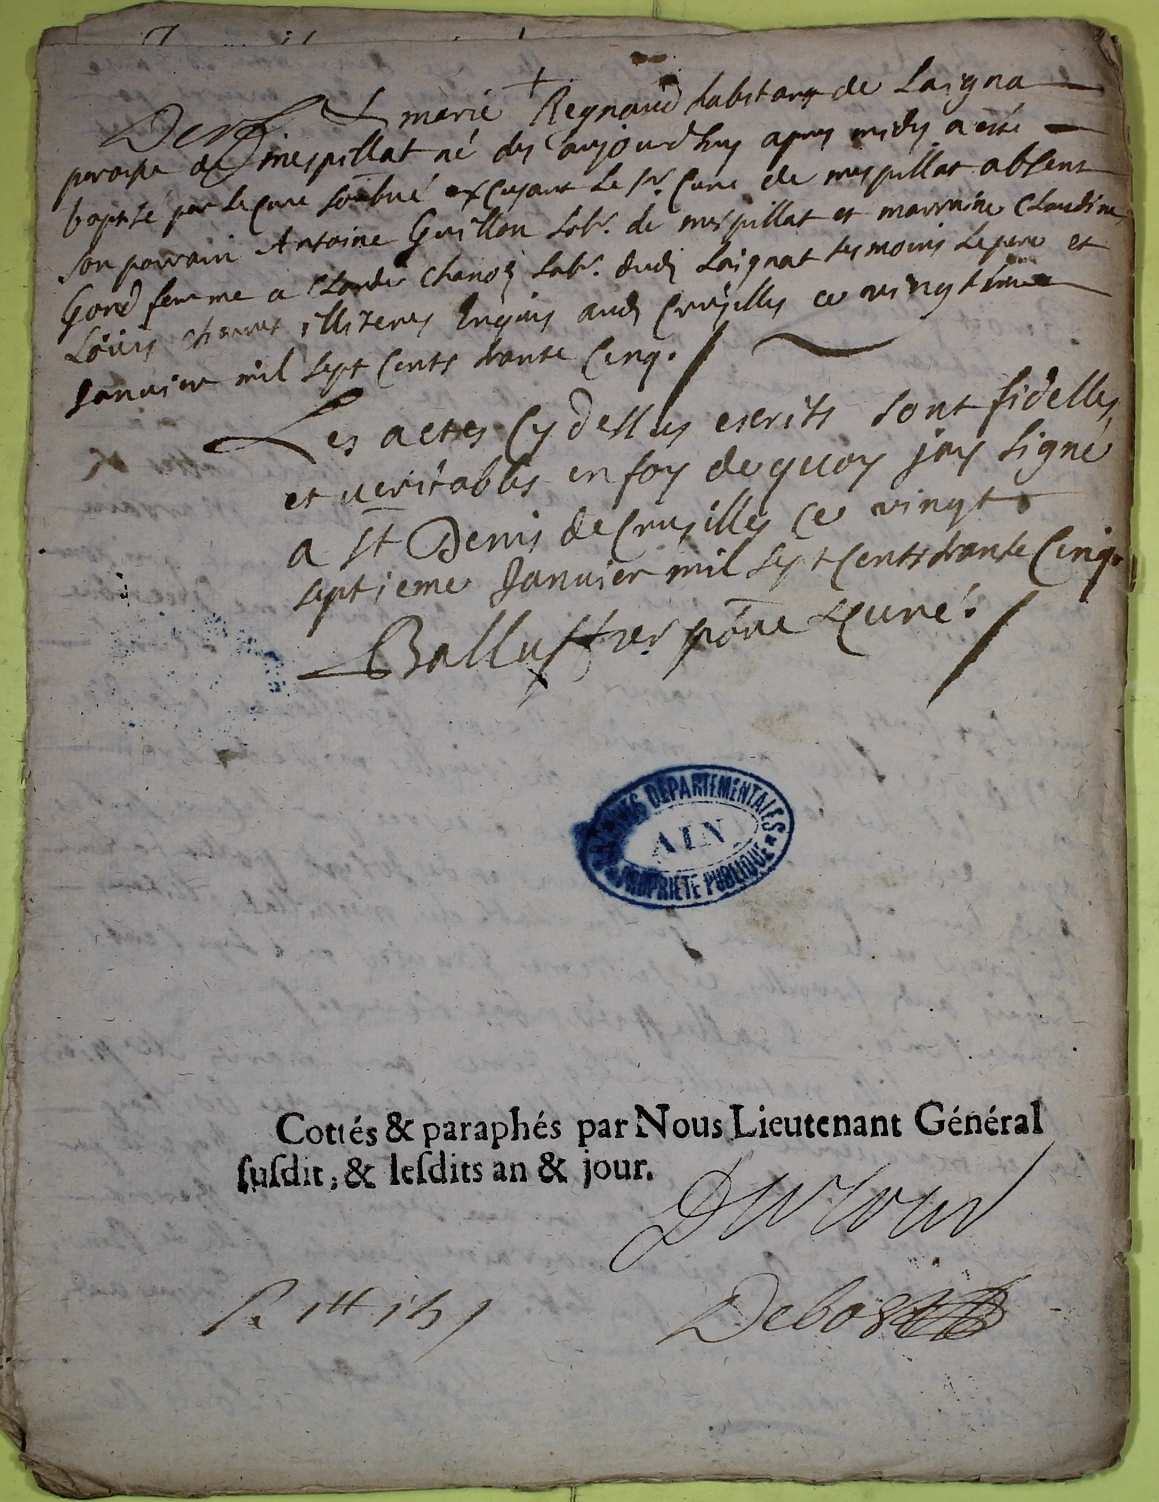 marie Regnaud habitant de Laigna
paroisse de mespillat né dès aujourd'huy apres midy a esté
baptisé par le curé soubné excusant le sr. Curé de mespillat absent
son parrain Antoine Guillon labr. de mespillat et marraine Claudine
Gond femme a Claude labr. dudi Laignat tesmoins le pere et
Loüis illiteres Enquis audi Crusilles ce vingt
Janvier mil sept Cents trante Cinq.
Les actes Cy dessus escrits sont fidelles
et veritables en foy de quoy jay signé
a St Denis de Crusilles ce vingt
septieme Janvier mil sept Cents trante Cinq.
Balluffier pbre & curé.
ARCHIVES DÉPARTEMENTALES
AIN
PROPRIÉTÉ PUBLIQUE
Cottés & paraphés par Nous Lieutenant Général
ſuſdit, & leſdits an & jour.